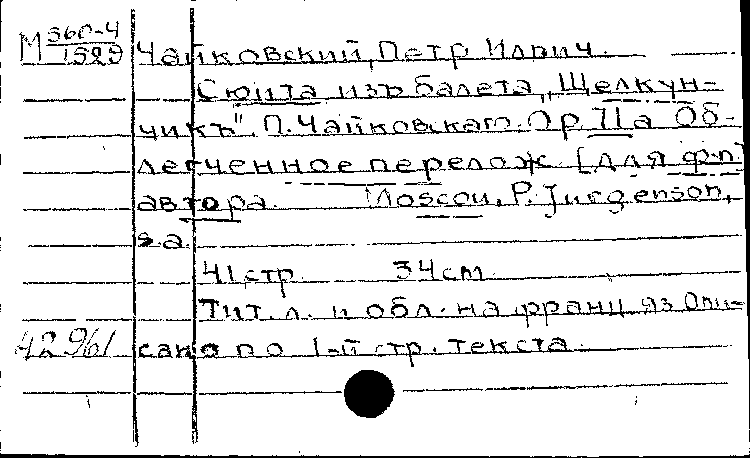 М 360-4 Чайковский, Петр Ильич.
1529
Сюита изъ балета „Щелкун-
чикъ". П. Чайковскаго. Op. 71a Об-
легченное перелож [для ф-п]
автора. Moscou, P. Jurgenson,
s.a.
41 стр. 34 cm.
Тит. л. и обл. на франц. яз Опи-
42961 сано по 1-й стр. текста.